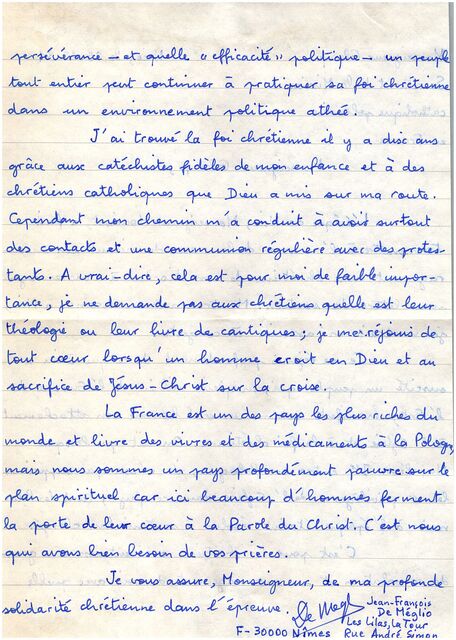 persévérance – et quelle "efficacité" politique – un peuple
tout entier peut continuer à pratiquer sa foi chrétienne
dans un environnement politique athée.
J'ai trouvé la foi chrétienne il y a disc ans
grâce aux catéchistes fidèles de mon enfance et à des
chrétiens catholiques que Dieu a mis sur ma route.
Cependant mon chemin m'a conduit à avoir surtout
des contacts et une communion régulière avec des protes-
tants. A vrai-dire, cela est pour moi de faible impor-
tance, je ne demande pas aux chrétiens quelle est leur
théologie ou leur livre de cantiques ; je me réjouis de
tout cœur lorsqu'un homme croit en Dieu et au
sacrifice de Jésus-Christ sur la croise.
La France est un des pays les plus riches du
monde et livre des vivres et des médicaments à la Pologne,
mais nous sommes un pays profondément pauvre sur le
plan spirituel car ici beaucoup d'hommes ferment
la porte de leur cœur à la Parole du Christ. C'est nous
qui avons bien besoin de vos prières.
Je vous assure, Monseigneur, de ma profonde
solidarité chrétienne dans l'épreuve.
De Megl
Jean-François
De Méglio
Les Lilas, La Tour
Rue André Simon
F-30000 Nîmes